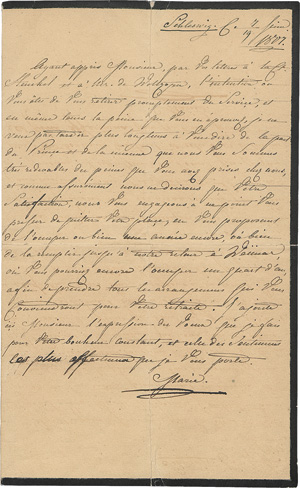 Schleswig. Ce 7 Juin
1807.
Ayant appris Monsieur, par Vos lettres à
et à Mr. de Wolzogen, l'intention où
Vous êtes de Vous retirer promptement du Service, et
en même tems la peine que Vous en éprouvés, je ne
veux pas tarder plus longtems à Vous dire de la part
du Prince et de la mienne que nous Vous sommes
très redevables des peines que Vous avés prises chez nous,
et comme assurément nous ne desirons que Votre
Satisfaction, nous Vous engageons à ne point Vous
presser de quitter Votre place, en Vous proposant
de l'occuper ou bien une année encore, où bien
de la remplir jusqu'à notre retour à Weimar,
où Vous pourriez encore l'occuper un quart d'an,
afin de prendre tous les arrangemens qui Vous
conviendront pour Votre retraite. J'ajoute
ici Monsieur l'expression des Voeux que je fais
pour Votre bonheur constant, et celle des Sentimens
les plus affectueux que je Vous porte
Marie.